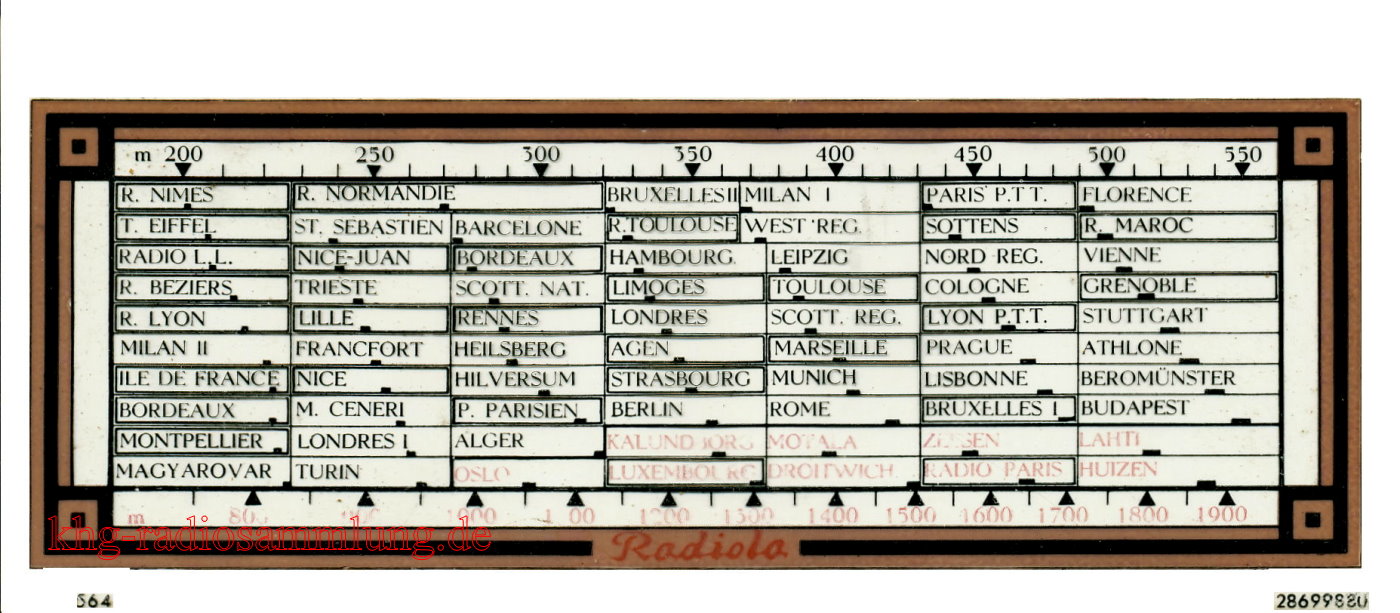 m 200 250 300 350 400 450 500 550
R. NIMES R. NORMANDIE BRUXELLES II MILAN I PARIS P.T.T. FLORENCE
T. EIFFEL ST. SEBASTIEN BARCELONE R.TOULOUSE WEST REG. SOTTENS R. MAROC
RADIO L.L. NICE-JUAN BORDEAUX HAMBOURG. LEIPZIG NORD REG. VIENNE
R. BEZIERS TRIESTE SCOTT. NAT. LIMOGES TOULOUSE COLOGNE GRENOBLE
R. LYON LILLE RENNES LONDRES SCOTT. REG. LYON P.T.T. STUTTGART
MILAN II FRANCFORT HEILSBERG AGEN MARSEILLE PRAGUE ATHLONE
ILE DE FRANCE NICE HILVERSUM STRASBOURG MUNICH LISBONNE BEROMÜNSTER
BORDEAUX M. CENERI P. PARISIEN BERLIN ROME BRUXELLES I BUDAPEST
MONTPELLIER LONDRES I ALGER KALUNDBORG MOTALA LAHTI
MAGYAROVAR TURIN OSLO LUXEMBOURG DROITWICH RADIO PARIS HUIZEN
m 800 900 1000 1100 1200 1300 1400 1500 1600 1700 1800 1900
khg-radiosammlung.de
Radiola
564 28699880